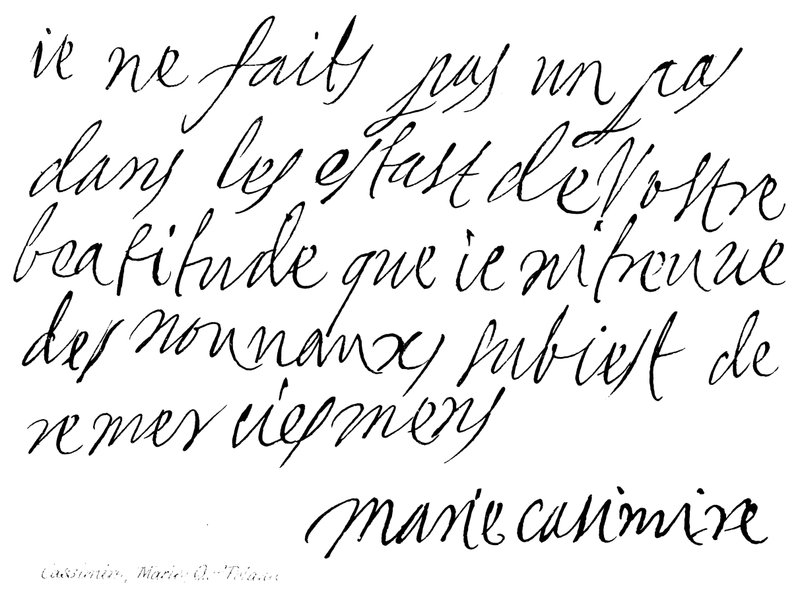 ie ne faits pas un pas
dans les estast de Vostre
beatitude que ie m'treuue
des nouuauxs subiest de
remerciesmens
marie casimire
Cassimire, Marie,